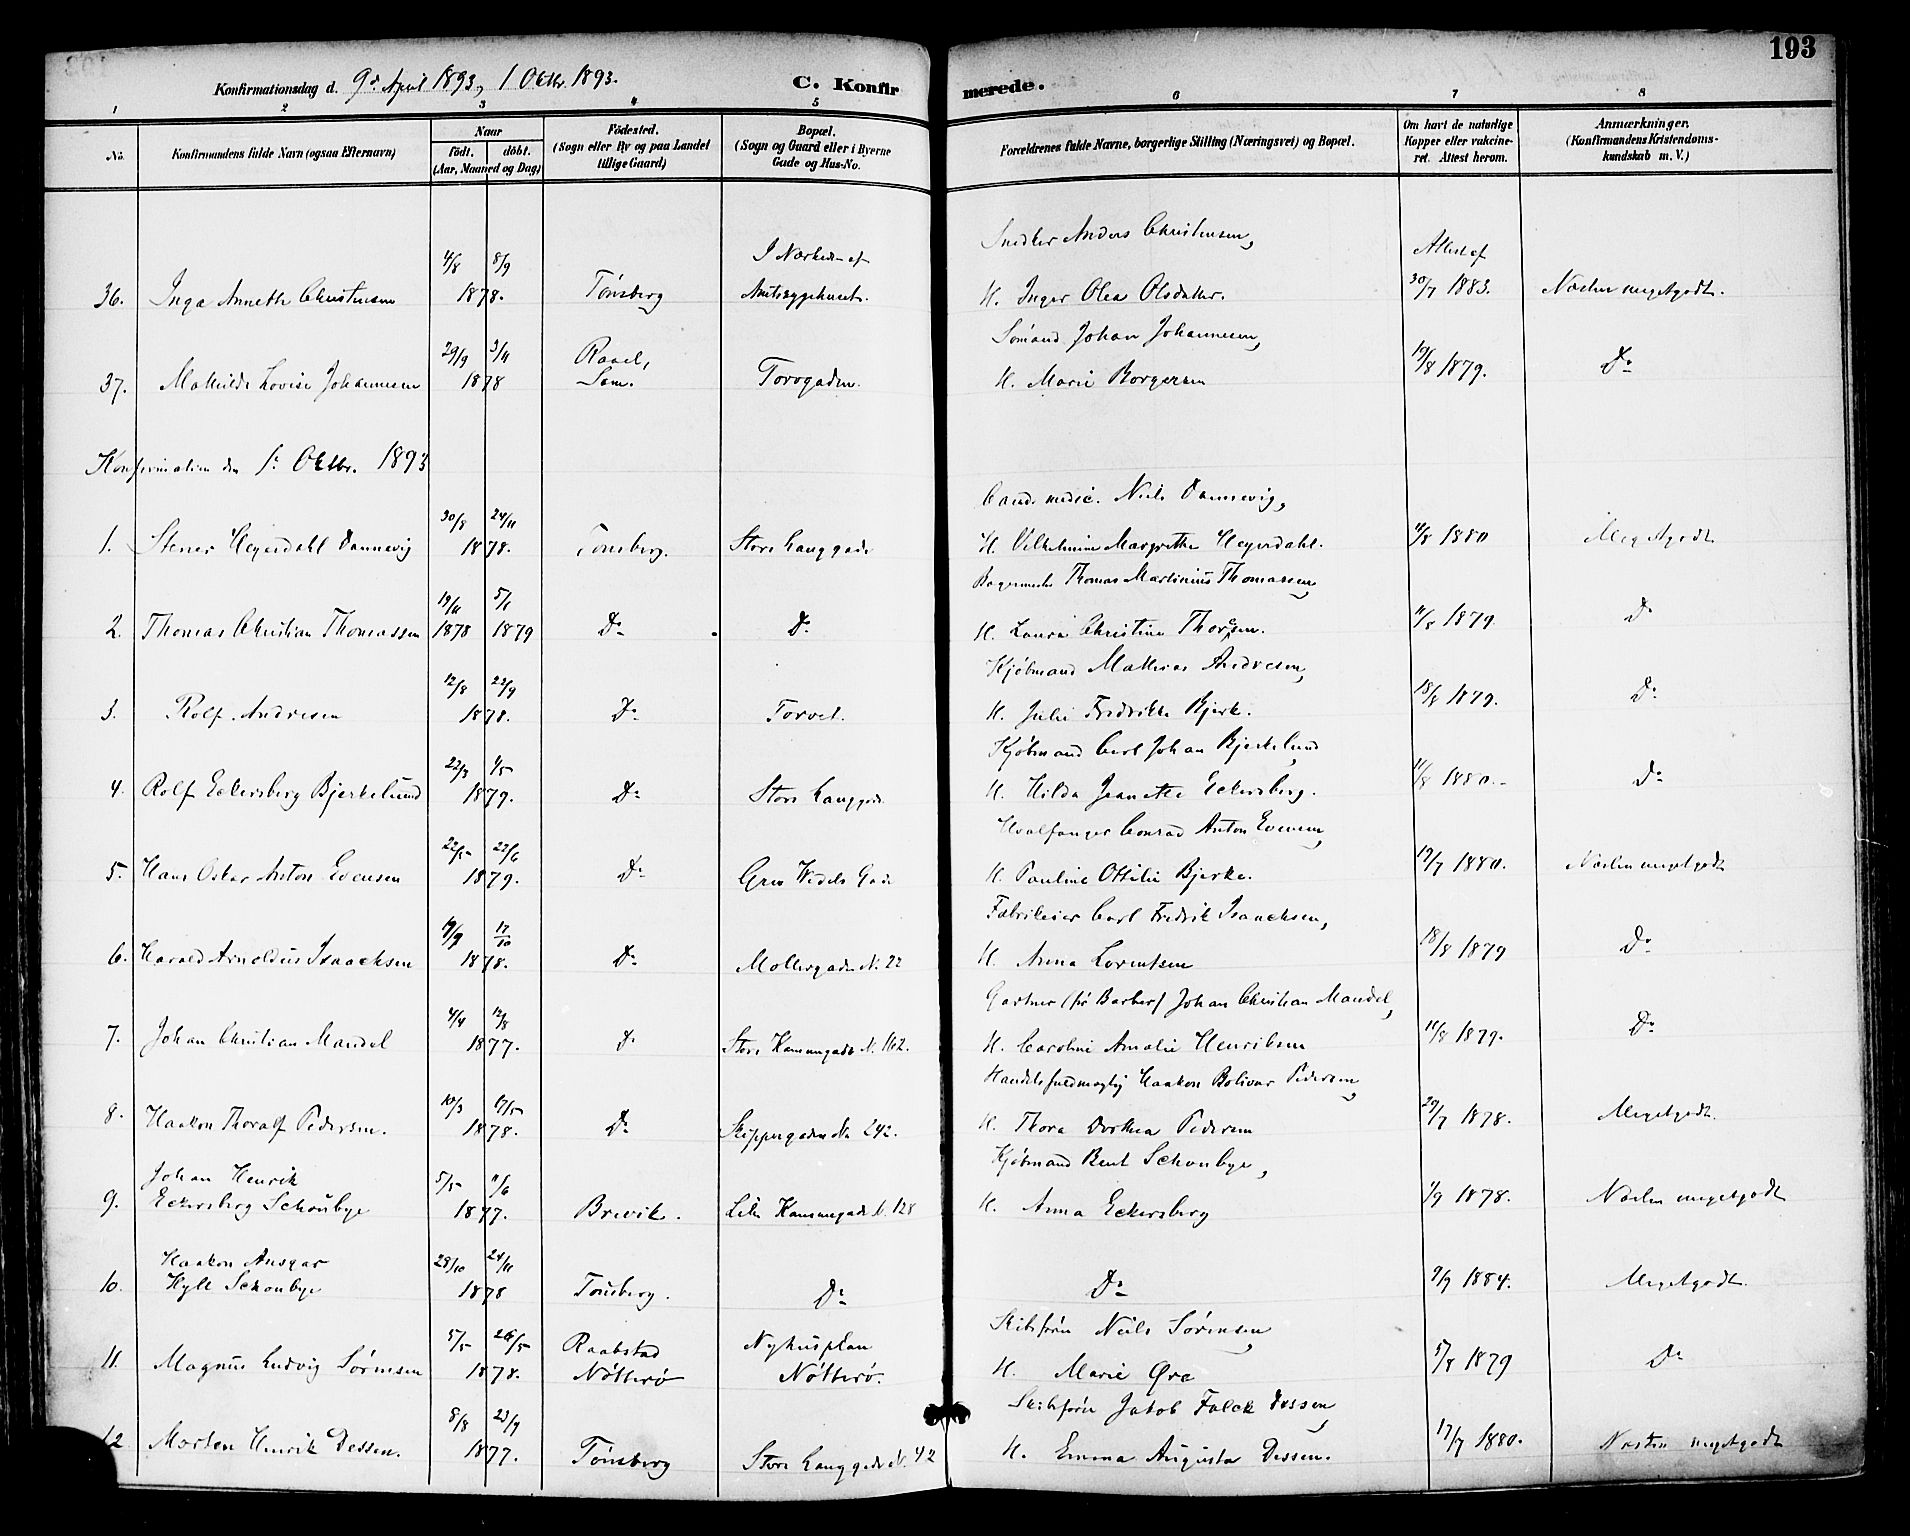 193
Konfirmationsdag d. 9de April 1893, 1 Oktbr. 1893.
C. Konfirmerede.
1 2 3 4 5 6 7 8
No.
Konfirmandens fulde Navn (ogsaa Efternavn)
Naar
födt. döbt.
(Aar, Maaned og Dag)
Födested.
(Sogn eller By og paa Landet
tillige Gaard)
Bopæl.
(Sogn og Gaard eller i Byerne
Gade og Hus-No.
Forældrenes fulde Navne, borgerlige Stilling (Næringsvei) og Bopæl.
Om havt de naturlige
Kopper eller vakcine-
ret. Attest herom.
Anmærkninger.
(Konfirmandens Kristendoms-
kundskab m. V.)
Snedker Anders Christensen,
4/8 8/9 I Nærheden af Attest af
36. Inga Annette Christensen 1878. Tönsberg Amtssygehuset. H. Inger Olea Olsdatter. 30/7 1883. Næsten megetgodt.
Sømand Johan Johannesen,
29/9 3/11 Raael,
37. Mathilde Lovise Johannesen 1878 Sem. Torvgaden. H. Marie Borgersen 19/8 1879. Do
Konfirmation den 1ste Oktbr. 1893
Cand. medic. Niels Dannevig,
30/8 24/11
1. Stener Heyerdahl Dannevig 1878. Tönsberg. Store Langgade H. Vilhelmine Margrethe Heyerdahl. 11/8 1880 Megetgodt
Bagermester Thomas Martinius Thomassen,
19/11 5/1
2. Thomas Christian Thomassen 1878 1879 Do Do H. Laura Christine Thoresen. 11/8 1879 Do
Kjøbmand Mathias Andresen,
12/8 22/9
3. Rolf Andresen 1878. Do Torvet. H. Julie Fredrikke Bjerk. 18/8 1879. Do
Kjøbmand Carl Johan Bjerkelund,
22/3 4/5
4. Rolf Eckersberg Bjerkelund 1879. Do Store Langgade H. Hilda Jeanette Eckersberg. 11/8 1880. Do
Hvalfanger Conrad Anton Evensen,
22/5 22/6
5. Hans Oskar Anton Evensen 1879. Do Grev Wedels Gade H. Pauline Ottilie Bjerke. 19/7 1880. Næsten megetgodt
Fabrikeier Carl Fredrik Isaachsen,
19/9 17/10
6. Harald Arnoldus Isaachsen 1878. Do Mollergaden N. 22 H. Anna Lorentsen 18/8 1879 Do
Gartner (før Barber) Johan Christian Mandel,
4/4 12/8
7. Johan Christian Mandel 1877. Do Store Kammegade N. 162. H. Caroline Amalie Henriksen 11/8 1879. Do
Handelsfuldmægtig Haakon Bolivar Pedersen,
10/3 17/5
8. Haakon Thoralf Pedersen. 1878. Do Skippergaden No 242. H. Thora Dorthea Pedersen 29/7 1878. Megetgodt.
Johan Henrik Kjøbmand Bent Schonbye,
5/5 11/6
9. Eckersberg Schönbye 1877. Brevik. Lille Kammegade N. 128 H. Anna Eckersberg 1/9 1878. Næsten megetgodt
Haakon Ansgar 28/10 24/11
10. Hylt Schonbye 1878 Tönsberg. Do Do 9/9 1884. Megetgodt.
Skibsfører Niels Sørensen,
5/5 26/5 Raabstad Nyhusplan
11. Magnus Ludvig Sørensen 1878. Nötterö Nötterö. H. Marie Øre 5/8 1879 Do
Skibsfører Jakob Falck Dessen,
8/8 23/9
12 Morten Henrik Dessen. 1877. Tönsberg Store Langgade N. 42 H. Emma Augusta Dessen. 17/7 1880. Næsten megetgodt